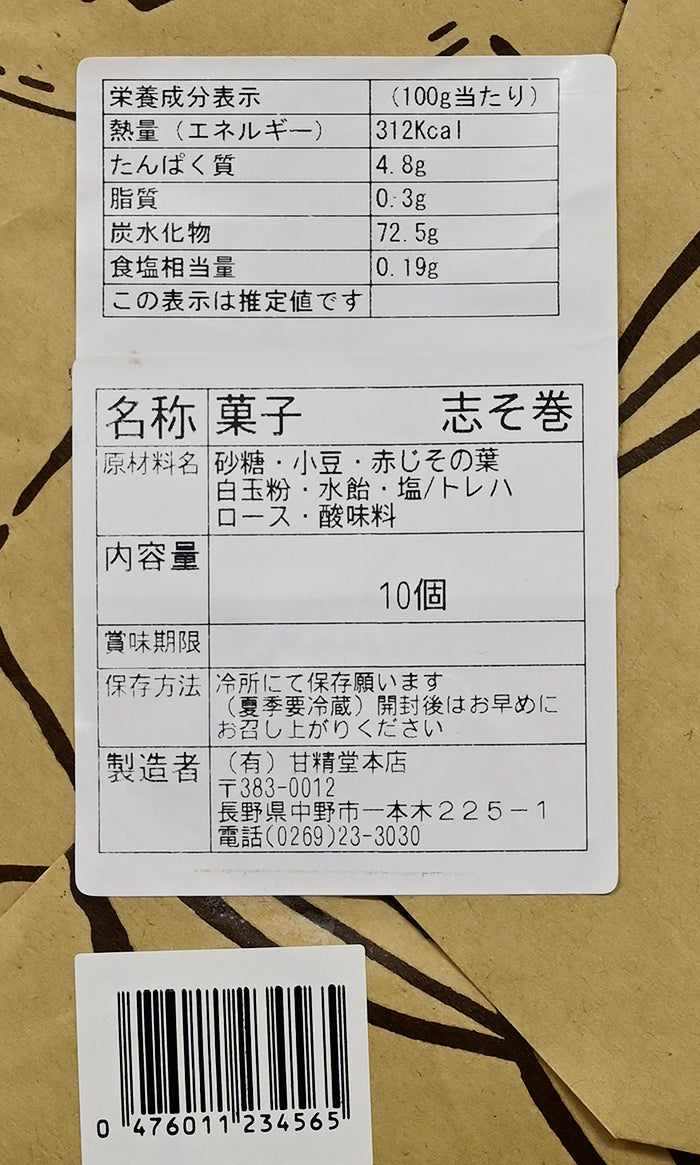 栄養成分表示 （100g当たり）
熱量（エネルギー） 312Kcal
たんぱく質 4.8g
脂質 0.3g
炭水化物 72.5g
食塩相当量 0.19g
この表示は推定値です
名称 菓子 志そ巻
原材料名 砂糖・小豆・赤じその葉
白玉粉・水飴・塩/トレハ
ロース・酸味料
内容量 10個
賞味期限
保存方法 冷所にて保存願います
（夏季要冷蔵）開封後はお早めに
お召し上がりください
製造者 （有）甘精堂本店
〒383-0012
長野県中野市一本木２２５－１
電話(0269)23-3030
0 476011 234565